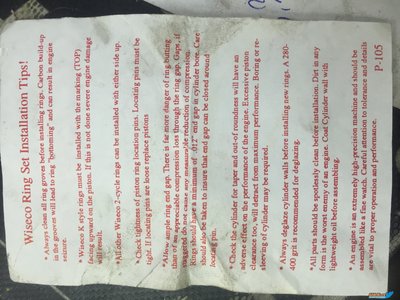 Wiseco Ring Set Installation Tips!
* Always clean all ring grooves before installing rings. Carbon build-up
in the grooves will lead to ring "bottoming" and can result in engine
seizure.
* Wiseco K style rings must be installed with the marking (TOP)
facing upward on the piston. If this is not done severe engine damage
will result.
* All other Wiseco 2-cycle rings can be installed with either side up.
* Check tightness of piston ring location pins. Locating pins must be
tight. If locating pins are loose replace pistons
* Allow ample ring end gap. There is far more danger of ring butting
than of an appreciable compression loss through the ring gap. Gaps, if
staggered do not cause any measurable reduction of compression.
Rings should have a minimum of .012" end gap in cylinder bore. Care
should also be taken to insure that end gap can be closed around
locating pin.
* Check the cylinder for taper and out-of roundness will have an
adverse effect on the performance of the engine. Excessive piston
clearance too, will detract from maximum performance. Boring or re-
sleeving of cylinder may be required.
* Always deglaze cylinder walls before installing new rings. A 280-
400 grit is recommended for deglazing.
* All parts should be spotlessly clean before installation. Dirt in any
form is the worst enemy of an engine. Coat Cylinder wall with
lightweight oil before assembling.
* An engine is an extremely high-precision machine and should be
assembled like a fine watch. Careful attention to tolerance and details
are vital to proper operation and performance.
P-105